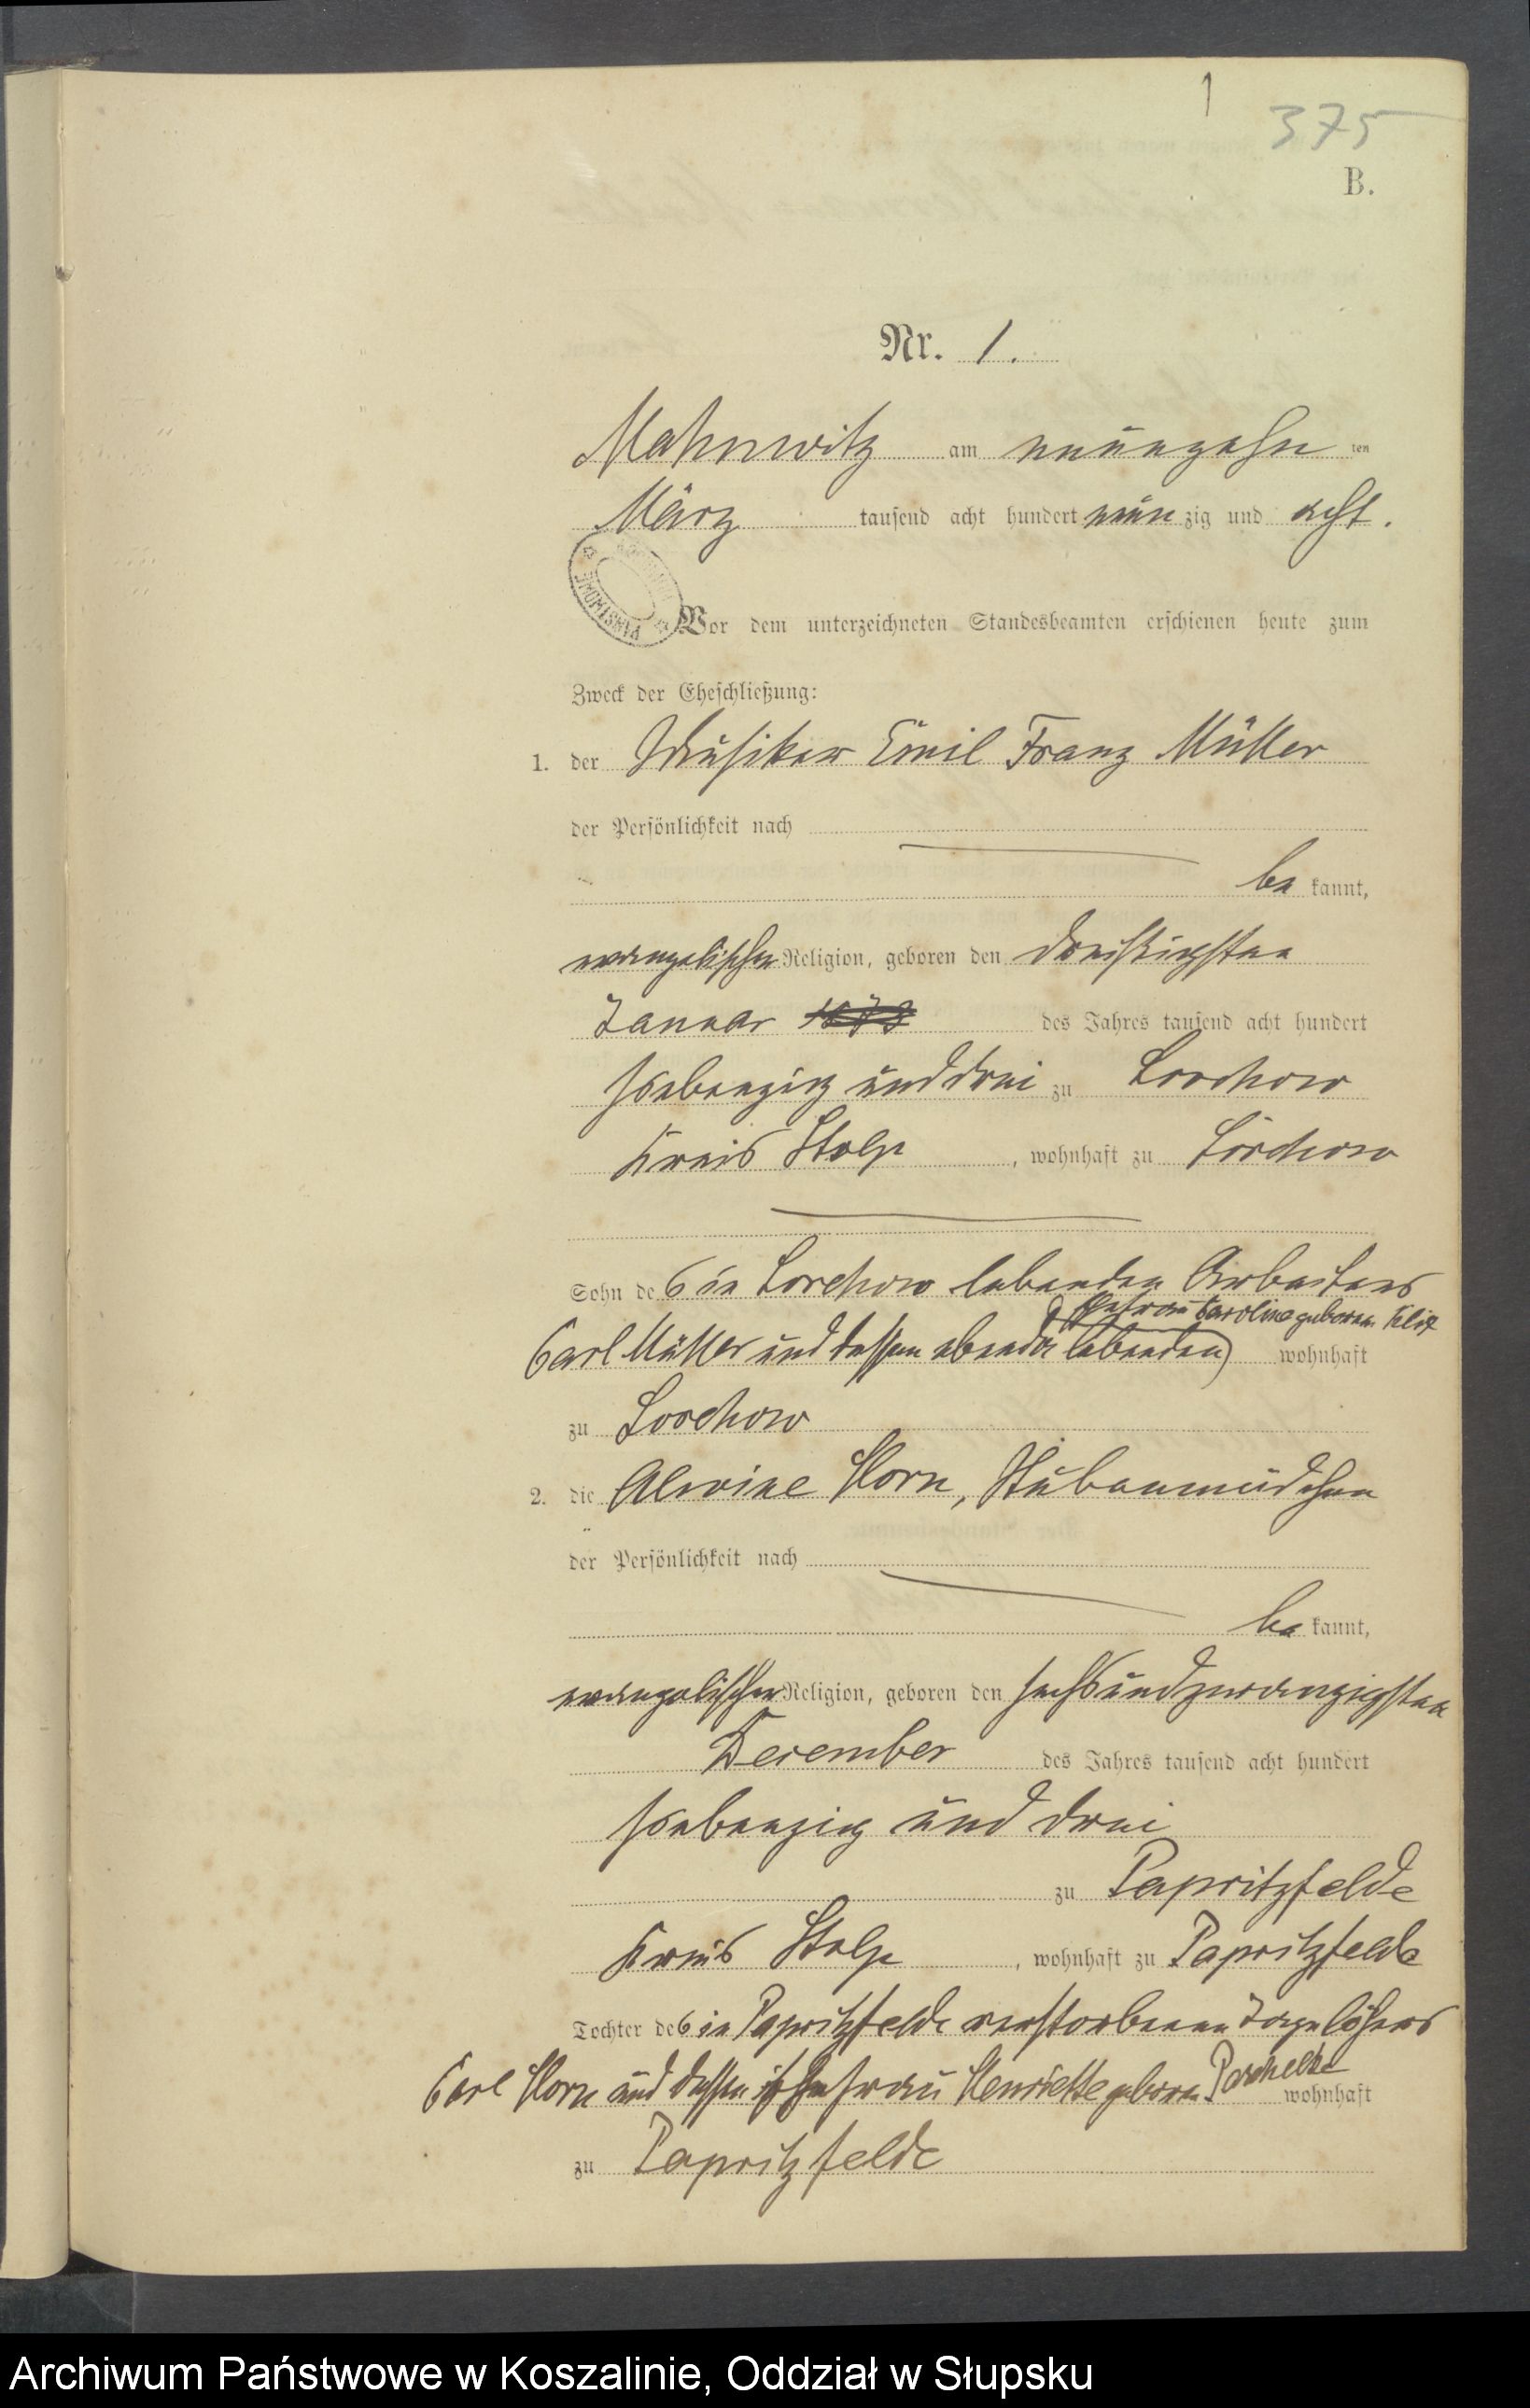 1
375
B.
Nr. 1.
Mahnwitz am neunzehn ten
März tausend acht hundert neun zig und acht.
Vor dem unterzeichneten Standesbeamten erschienen heute zum
Zweck der Eheschließung:
1. der Musiker Emil Franz Müller
der Persönlichkeit nach
be kannt,
evangelischer Religion, geboren den dreißigsten
Januar 1873 des Jahres tausend acht hundert
siebenzig und drei zu Lorchow
Kreis Stolp, wohnhaft zu Lorchow
Sohn des in Lorchow lebenden Arbeiters
Ehefrau Caroline geborene Klix
Carl Müller und dessen ebenda lebenden wohnhaft
zu Lorchow
2. die Alwine Horn, Stubenmädchen
der Persönlichkeit nach
be kannt,
evangelischer Religion, geboren den sechsundzwanzigsten
December des Jahres tausend acht hundert
siebenzig und drei
zu Papritzfelde
Kreis Stolp, wohnhaft zu Papritzfelde
Tochter des in Papritzfelde verstorbenen Tagelöhners
Carl Horn und dessen Ehefrau Henriette geborene wohnhaft
zu Papritzfelde
Archiwum Państwowe w Koszalinie, Oddział w Słupsku